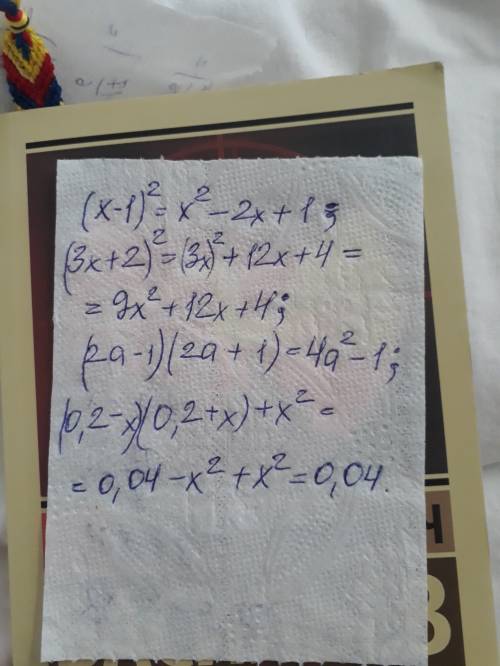 (x-1)² = x² - 2x + 1;
(3x+2)² = (3x)² + 12x + 4 =
= 9x² + 12x + 4;
(2a-1)(2a+1) = 4a² - 1;
(0,2-x)(0,2+x) + x² =
= 0,04 - x² + x² = 0,04